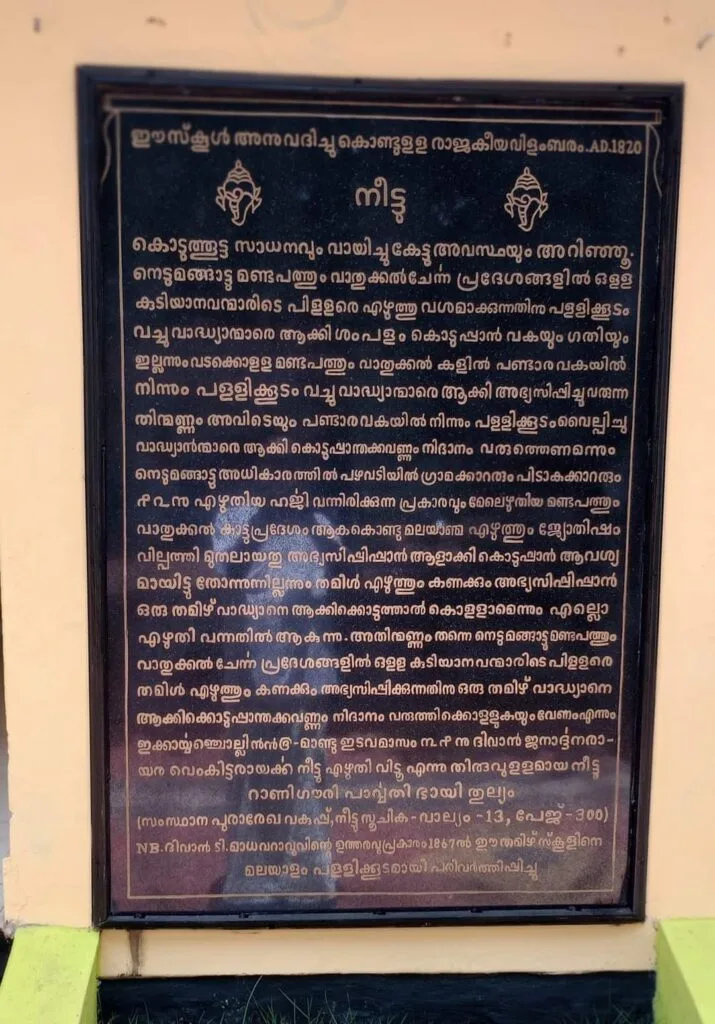 ഈസ്കൂൾ അനുവദിച്ചുകൊണ്ടുളള രാജകീയവിളംബരം.AD.1820
നീട്ടു
കൊടുത്തൂട്ട സാധനവും വായിച്ചുകേട്ടുഅവസ്ഥയും അറിഞ്ഞൂ.
നെടുമങ്ങാട്ടുമണ്ടപത്തും വാതുക്കൽചേർന്ന പ്രദേശങ്ങളിൽ ഒളള
കുടിയാനവന്മാരിടെ പിളളരെ എഴുത്തു വശമാക്കുന്നതിനു പളളിക്കൂടം
വച്ചുവാദ്ധ്യാന്മാരെ ആക്കിശംപളം കൊടുപ്പാൻ വകയും ഗതിയും
ഇല്ലന്നുംവടക്കൊളള മണ്ടപത്തും വാതുക്കൽ കളിൽ പണ്ടാരവകയിൽ
നിന്നും പളളിക്കൂടം വച്ചുവാദ്ധ്യാന്മാരെ ആക്കി അഭ്യസിപ്പിച്ചുവരുന്ന
തിന്മണ്ണം അവിടെയും പണ്ടാരവകയിൽ നിന്നും പളളിക്കൂടംവൈല്പിച്ചു
വാദ്ധ്യാൻന്മാരെ ആക്കി കൊടുപ്പാന്തക്കവണ്ണം നിദാനം വരുത്തെണമന്നും
നെടുമങ്ങാട്ടുഅധികാരത്തിൽ പഴവടിയിൽഗ്രാമക്കാറരും പിടാകക്കാറരും
എഴുതിയ ഹർജി വന്നിരിക്കുന്ന പ്രകാരവും മേലെഴുതിയ മണ്ടപത്തും
വാതുക്കൽ കാട്ടുപ്രദേശം ആകകൊണ്ടുമലയാണ്മ എഴുത്തും ജ്യോതിഷം
വില്പത്തി മുതലായതു അഭ്യസിപ്പിപ്പാൻ ആളാക്കികൊടുപ്പാൻ ആവശ്യ
മായിട്ടു തോന്നുന്നില്ലന്നും തമിൾ എഴുത്തും കണക്കും അഭ്യസിപ്പിപ്പാൻ
ഒരു തമിഴ് വാദ്ധ്യാനെ ആക്കിക്കൊടുത്താൽ കൊളളാമെന്നും എല്ലൊ
എഴുതി വന്നതിൽ ആകുന്നു. അതിന്മണ്ണം തന്നെ നെടുമങ്ങാട്ടുമണ്ടപത്തും
വാതുക്കൽ ചേർന്ന പ്രദേശങ്ങളിൽ ഒളള കുടിയാനവന്മാരിടെപിളളരെ
തമിൾ എഴുത്തും കണക്കും അഭ്യസിപ്പിക്കുന്നതിനു ഒരു തമിഴ് വാദ്ധ്യാനെ
ആക്കിക്കൊടുപ്പാന്തക്കവണ്ണം നിദാനം വരുത്തിക്കൊളളുകയുംവേണംഎന്നും
മാണ്ടു ഇടവമാസം ദിവാൻ ജനാർദ്ദനരാ-
യര വെംകിട്ടരായക്ക നീട്ടു എഴുതി വിട്ടൂ എന്നു തിരുവുളളമായ നീട്ടൂ
റാണിഗൗരി പാർവ്വതി ഭായി തുല്യം
(സംസ്ഥാന പുരാരേഖ വകുപ്പ്,നീട്ടുസൂചിക-വാല്യം -13, പേജ്-300)
NB.ദിവാൻ ടി.മാധവറാവുവിന്റെ ഉത്തരവുപ്രകാരം1867ൽ ഈ തമിഴ് സ്കൂളിനെ
മലയാളം പളളിക്കൂടമായി പരിവർത്തിപ്പിച്ചു